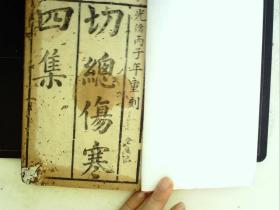 光緒丙子年重刻
切總傷寒
四集